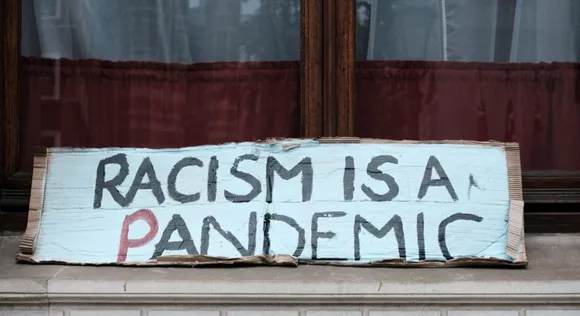 RACISM IS A
PANDEMIC